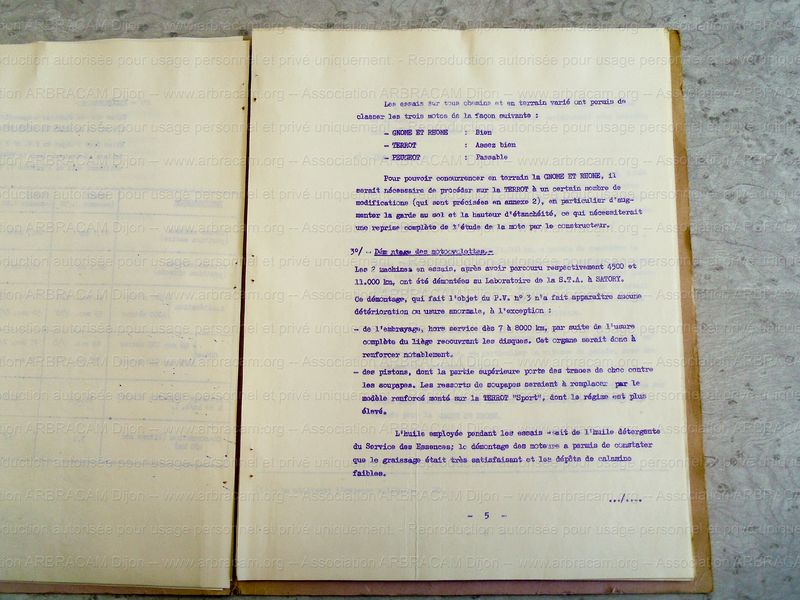 Les essais sur tous chemins et en terrain varié ont permis de
classer les trois motos de la façon suivante :
- GNOME ET RHONE : Bien
- TERROT : Assez bien
- PEUGEOT : Passable
Pour pouvoir concurrencer en terrain la GNOME ET RHONE, il
serait nécessaire de procéder sur la TERROT à un certain nombre de
modifications (qui sont précisées en annexe 2), en particulier d'aug-
menter la garde au sol et la hauteur d'étanchéité, ce qui nécessiterait
une reprise complète de l'étude de la moto par le constructeur.
3°/ - Démontage des motocyclettes.-
Les 2 machines en essais, après avoir parcouru respectivement 4500 et
11.000 km, ont été démontées au Laboratoire de la S.T.A. à SATORY.
Ce démontage, qui fait l'objet du P.V. n° 3 n'a fait apparaître aucune
détérioration ou usure anormale, à l'exception :
- de l'embrayage, hors service dès 7 à 8000 km, par suite de l'usure
complète du liège recouvrant les disques. Cet organe serait donc à
renforcer notablement.
- des pistons, dont la partie supérieure porte des traces de choc contre
les soupapes. Les ressorts de soupapes seraient à remplacer par le
modèle renforcé monté sur la TERROT "Sport", dont le régime est plus
élevé.
L'huile employée pendant les essais était de l'huile détergente
du Service des Essences; le démontage des moteurs a permis de constater
que le graissage était très satisfaisant et les dépôts de calamine
faibles.
.../....
- 5 -